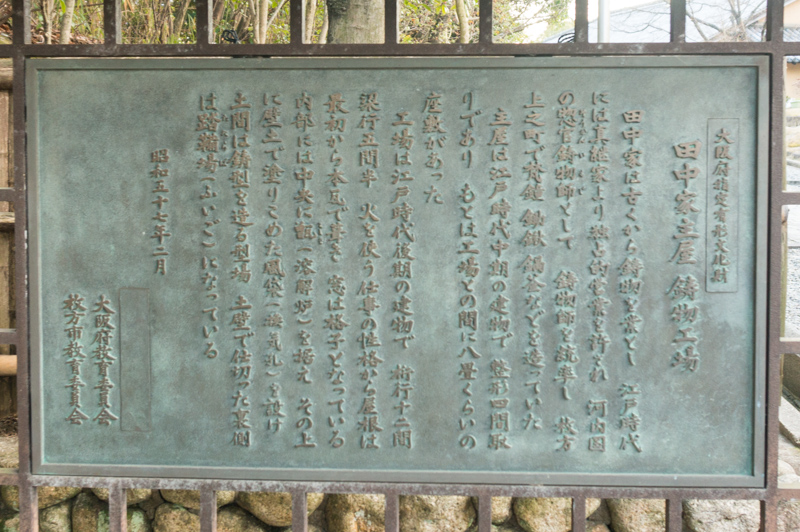 大阪府指定有形文化財
田中家主屋 鋳物工場
田中家は古くから鋳物を業とし 江戸時代
には真継家より独占的営業を許され 河内国
の惣官鋳物師として 鋳物師を統率し 枚方
上之町で梵鐘 鋤鍬 鍋釜などを造っていた
主屋は江戸時代中期の建物で 整形四間取
りであり もとは工場との間に八畳くらいの
座敷があった
工場は江戸時代後期の建物で 桁行十二間
梁行五間半 火を使う仕事の性格から屋根は
最初から本瓦で葺き 窓は格子となっている
内部には中央に甑(溶解炉)を据え その上
に壁土で塗りこめた風袋(換気孔)を設け
土間は鋳型を造る型場 土壁で仕切った裏側
は踏鞴場(ふいご)になっている
昭和五十七年二月
大阪府教育委員会
枚方市教育委員会